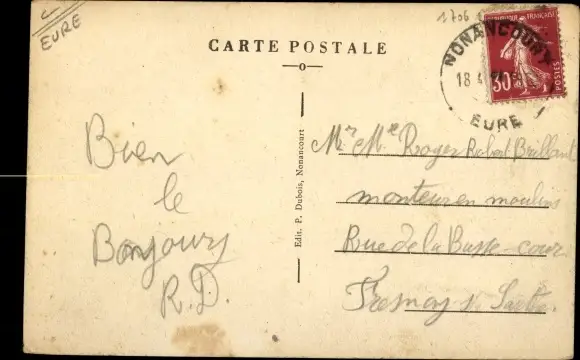 EURE
1706
CARTE POSTALE
FRANÇAISE
30
POSTES
NONANCOURT
18 4
EURE
Bien
le
Bonjours
R.D.
Edit. P. Dubois, Nonancourt
Mr Me Roger Robert Brillant
monteur en moulins
Rue de la Basse-cour
Fresnay s. Sarthe